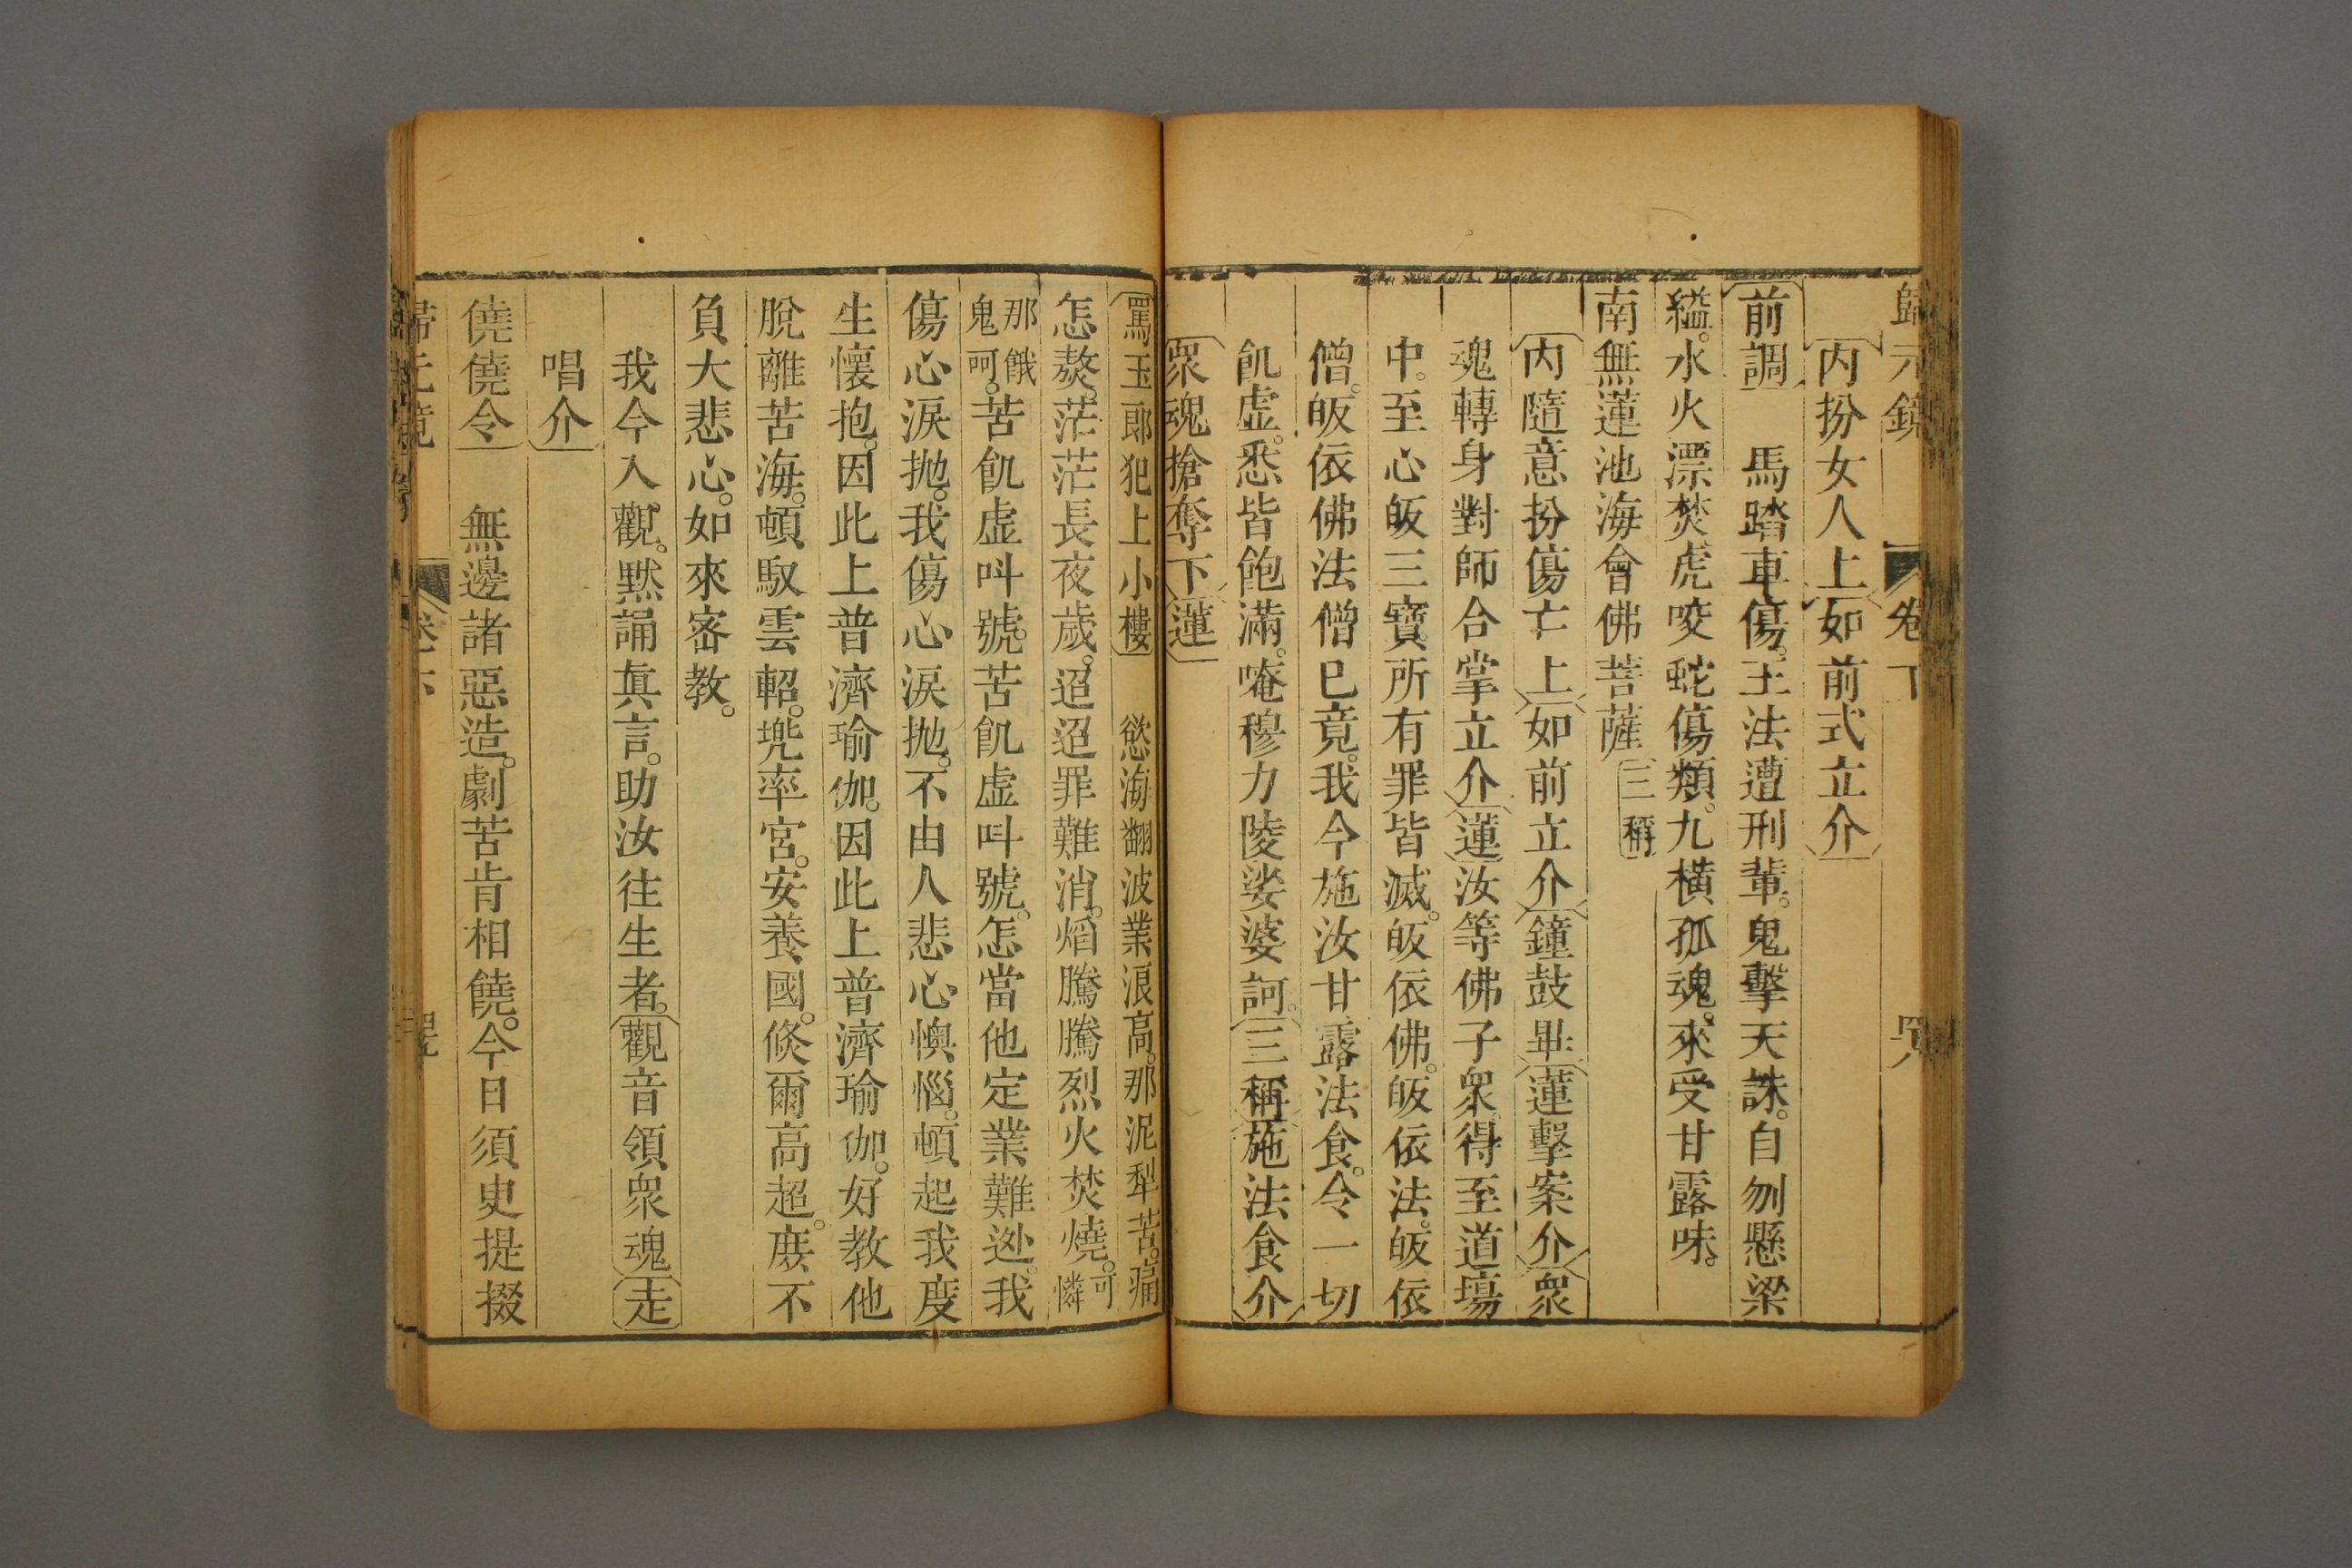 歸元鏡 卷下
內扮女人上如前式立介
前調 馬踏車傷。王法遭刑輩。鬼擊天誅。自刎懸梁
縊。水火漂焚虎咬蛇傷類。九橫孤魂。來受甘露味。
南無蓮池海會佛菩薩三稱
內隨意扮傷亡上如前立介鐘鼓畢蓮擊案介衆
魂轉身對師合掌立介蓮汝等佛子衆。得至道場
中。至心皈三寶。所有罪皆滅。皈依佛。皈依法。皈依
僧。皈依佛法僧巳竟。我今施汝甘露法食。令一切
飢虛。悉皆飽滿。唵穆力陵娑婆訶。三稱施法食介
衆魂搶奪下蓮
罵玉郎犯上小樓 慾海翻波業浪高。那泥犁苦。痛
怎熬。茫茫長夜歲。迢迢罪難消。熖騰騰烈火焚燒。可憐
那餓鬼呵。苦飢虛呌號。苦飢虛呌號。怎當他定業難逃。我
傷心淚拋。我傷心淚拋。不由人悲心懊惱。頓起我度
生懷抱。因此上普濟瑜伽。因此上普濟瑜伽。好教他
脫離苦海。頓馭雲軺。兠率宮。安養國。倐爾高超。庶不
負大悲心。如來密教。
我今入觀。默誦眞言。助汝往生者。觀音領衆魂走
唱介
僥僥令 無邊諸惡造。劇苦肯相饒。今日須史提掇